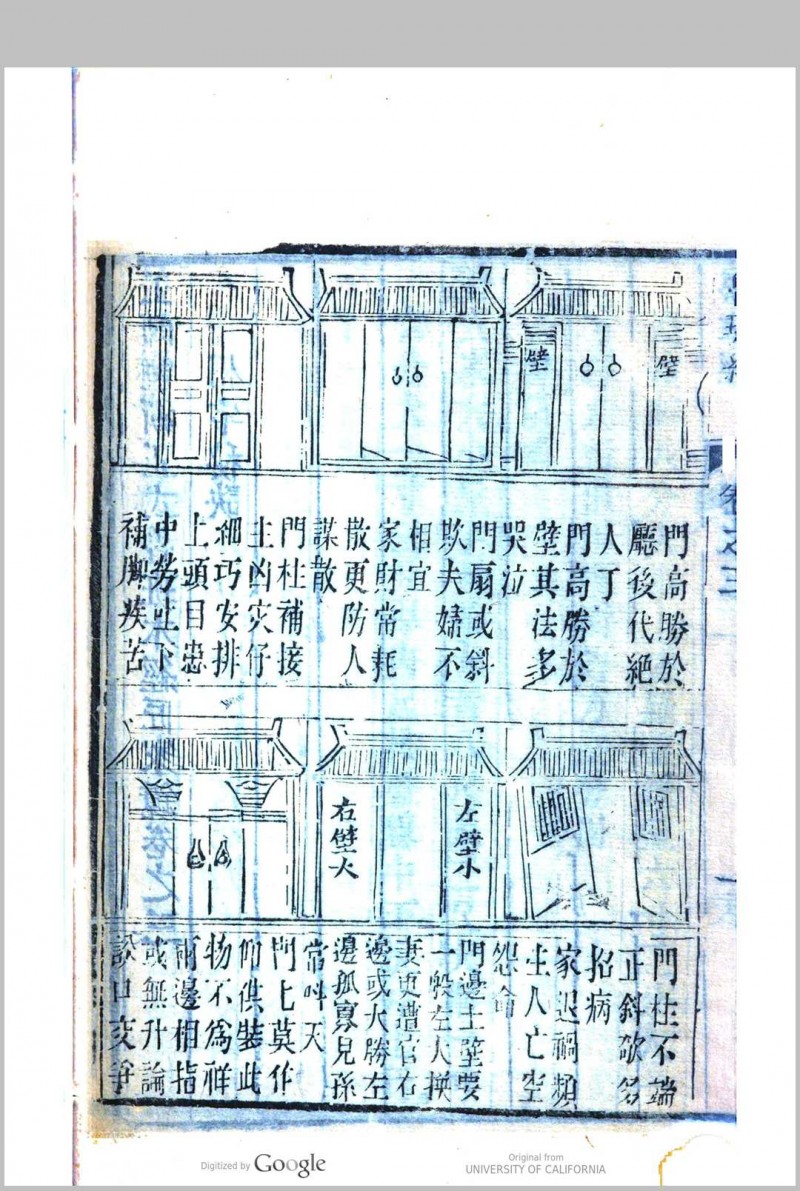 壁
壁
門高勝於
廳後代絕
人丁
門高勝於
壁其法多
哭泣
門扇或斜
欹夫婦不
相宜
家財常耗
散更防人
謀散
門柱補接
主凶災仔
細巧安排
上頭目患
中勞吐下
補脚疾苦
卷之二
左壁小
右壁大
門柱不端
正斜欹多
招病
家退禍頻
生人亡空
怨
門邊土壁要
一般左大換
妻更遭官右
邊或大勝左
邊孤寡兒孫
常叫天
門上莫作
仰供裝此
物不為祥
兩邊相指
或無升論
訟口交爭
Digitized by Google
Original from
UNIVERSITY OF CALIFORNIA